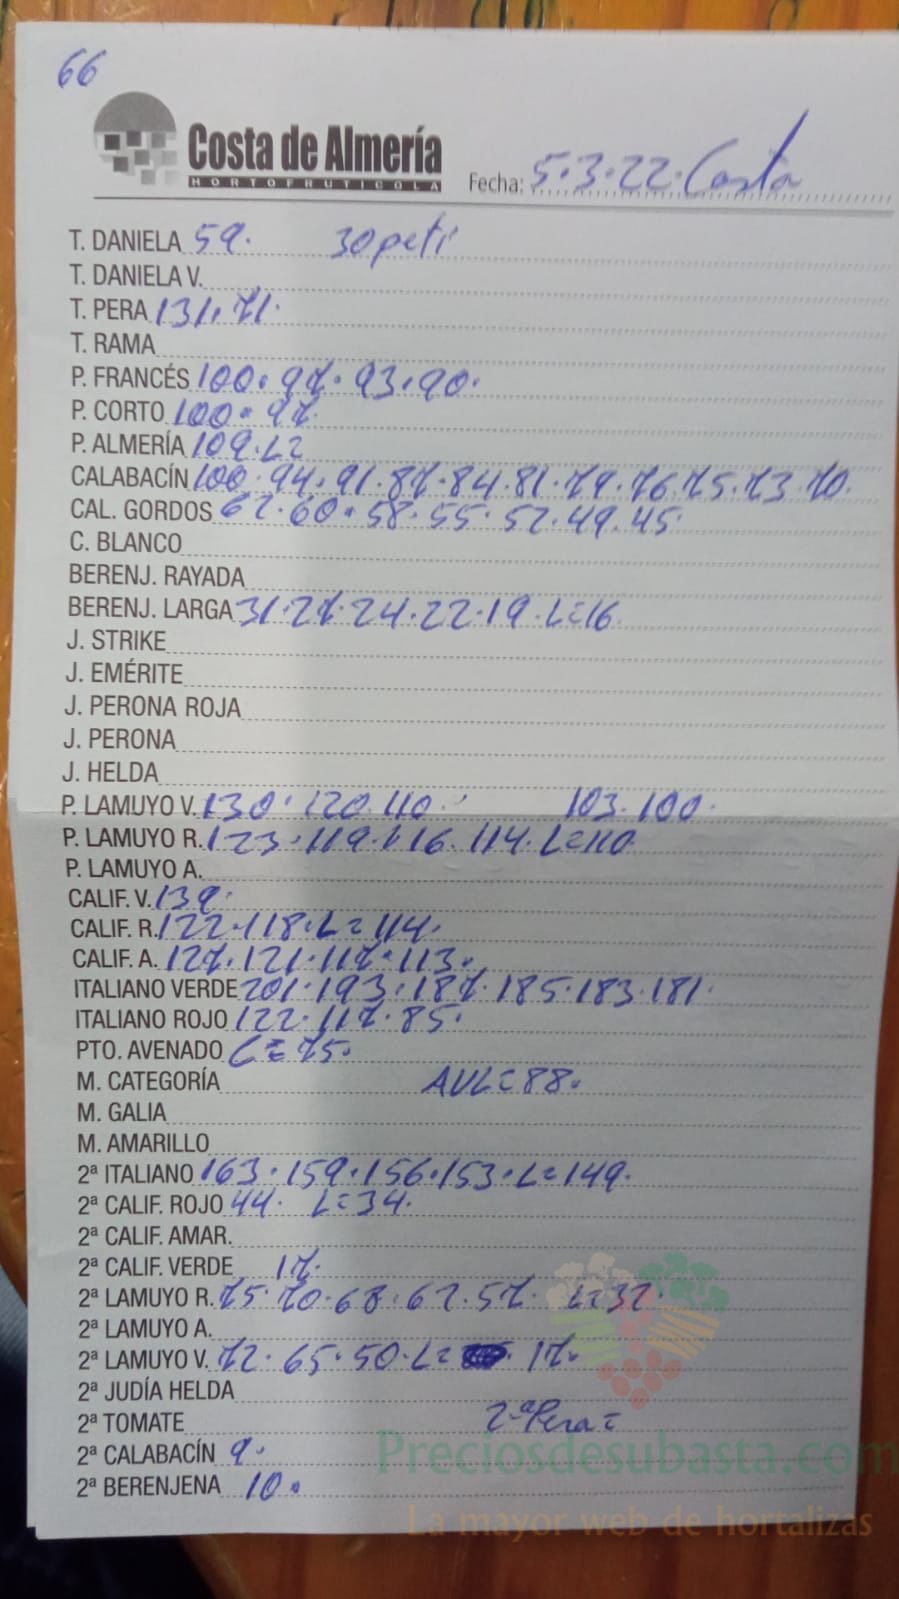 66
Costa de Almería
HORTOFRUTICOLA
Fecha: 5.3.22. Costa
T. DANIELA 59. 30 peti
T. DANIELA V.
T. PERA 131. 71.
T. RAMA
P. FRANCÉS 100. 97. 93. 90.
P. CORTO 100. 97.
P. ALMERÍA 109. L2
CALABACÍN 100. 94. 91. 87. 84. 81. 79. 76. 75. 73. 70.
CAL. GORDOS 62. 60. 58. 55. 52. 49. 45.
C. BLANCO
BERENJ. RAYADA
BERENJ. LARGA 31. 27. 24. 22. 19. L=16
J. STRIKE
J. EMÉRITE
J. PERONA ROJA
J. PERONA
J. HELDA
P. LAMUYO V. 130. 120. 110. 103. 100.
P. LAMUYO R. 123. 119. 116. 114. L=110
P. LAMUYO A.
CALIF. V. 139.
CALIF. R. 122. 118. L=114.
CALIF. A. 127. 121. 117. 113.
ITALIANO VERDE 201. 193. 187. 185. 183. 181.
ITALIANO ROJO 122. 117. 85.
PTO. AVENADO C=75.
M. CATEGORÍA AVL=88.
M. GALIA
M. AMARILLO
2ª ITALIANO 163. 159. 156. 153. L=149.
2ª CALIF. ROJO 44. L=34.
2ª CALIF. AMAR.
2ª CALIF. VERDE 17.
2ª LAMUYO R. 75. 70. 68. 62. 57. L=32.
2ª LAMUYO A.
2ª LAMUYO V. 72. 65. 50. L= 17.
2ª JUDÍA HELDA
2ª TOMATE 2ª Pera=
2ª CALABACÍN 9.
2ª BERENJENA 10.
Preciosdesubasta.com
La mayor web de hortalizas